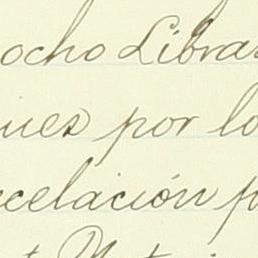 ocho Libras
ues por lo
celación p